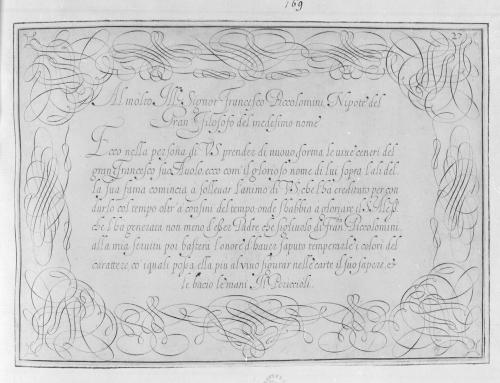 169
27
Al molto Ill.re Signor Francesco Piccolomini Nipote del
Gran Filosofo del medesimo nome
Ecco nella persona di V.S. prender di nuouo forma le uiue ceneri del
gran Francesco suo Auolo, ecco com'il glorioso nome di lui sopra l'ali del,
la sua fama comincia a solleuar l'animo di V.S. che l'ha creditato per con
durlo col tempo oltr'a confini del tempo, onde l'habbia a gloriare il S.r
che l'ha generata non meno d'esser Padre che figliuolo di Fran. Piccolomini,
alla mia seruitù poi basterà l'onore d'hauer saputo temperarle i colori del
carattere, co i quali possa ella più al uiuo figurar nelle carte il suo sapere, e
le bacio le mani. Periccioli.